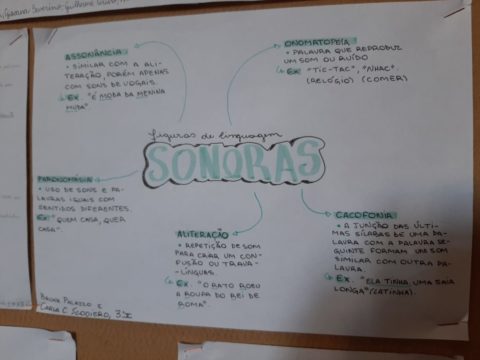 Giovana Severino, Guilherme
ASSONÂNCIA
• SIMILAR COM A ALI-
TERAÇÃO, PORÉM APENAS
COM SONS DE VOGAIS.
Ex. "É MODA DA MENINA
MUDA"
ONOMATOPEIA
• PALAVRA QUE REPRODUZ
UM SOM OU RUÍDO
Ex "TIC-TAC", "NHAC"
(RELÓGIO) (COMER)
figuras de linguagem
SONORAS
PARONOMÁSIA
• USO DE SONS E PA-
LAVRAS IGUAIS COM
SENTIDOS DIFERENTES.
Ex: "QUEM CASA, QUER
CASA"
ALITERAÇÃO
• REPETIÇÃO DE SOM
PARA CRIAR UM CON-
FUSÃO OU TRAVA-
-LÍNGUAS.
Ex. "O RATO ROEU
A ROUPA DO REI DE
ROMA".
CACOFONIA
• A JUNÇÃO DAS ÚLTI-
MAS SÍLABAS DE UMA PA-
LAVRA COM A PALAVRA SE-
GUINTE FORMAM UM SOM
SIMILAR COM OUTRA PA-
LAVRA.
Ex. "ELA TINHA UMA SAIA
LONGA" (LATINHA).
E
CARLA C. 3°